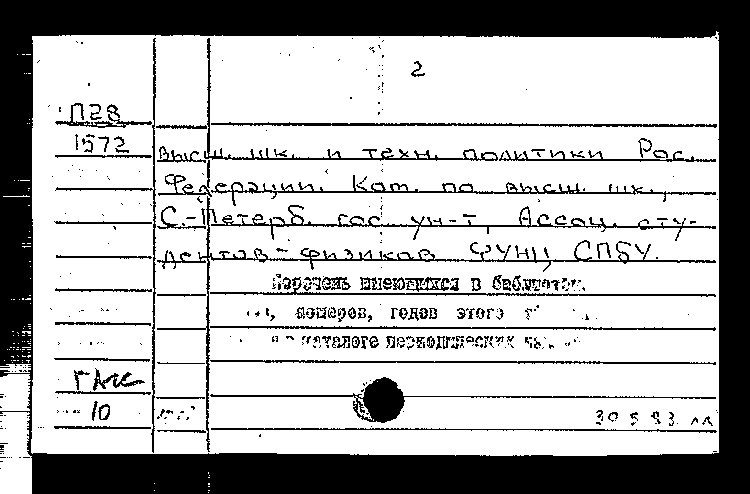 2
П28
1572
высш. шк. и техн. политики Рос.
Федерации. Ком. по высш. шк.,
С-Петерб. гос. ун-т, Ассоц. сту-
дентов-физиков ФУНЦ СПбУ.
Перечень имеющихся в библиотеке
номеров, годов этого
каталоге периодических
10